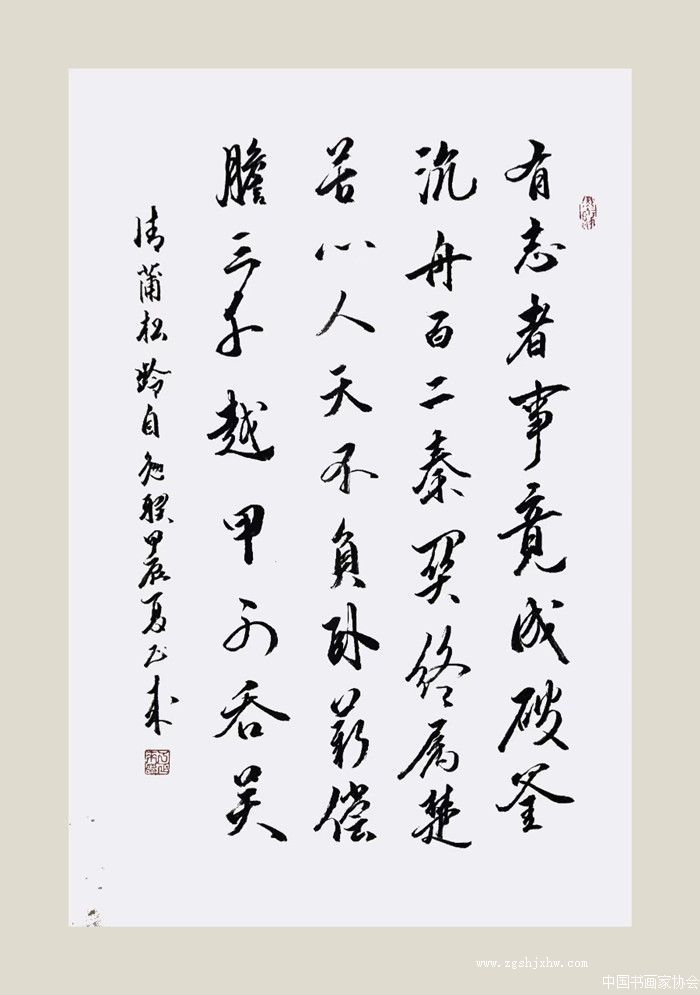 有志者事竟成破釜
沉舟百二秦関终属楚
苦心人天不負卧薪偿
膽三千越甲可吞吴
清蒲松龄自勉联甲辰夏正来
www.zgshjxhw.com
中国书画家协会